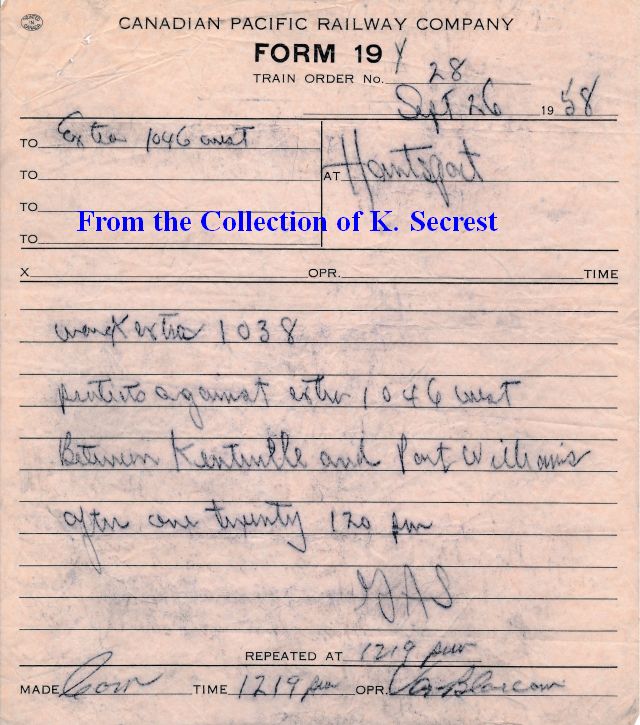 PRINTED IN CANADA
CANADIAN PACIFIC RAILWAY COMPANY
FORM 19 Y
TRAIN ORDER No. 28
Sept 26 1958
TO Extra 1046 west
AT Hantsport
TO
TO
TO
From the Collection of K. Secrest
X OPR. TIME
work extra 1038
protects against extra 1046 west
Between Kentville and Port Williams
after one twenty 120 pm
GAS
REPEATED AT 1219 pm
MADE Com TIME 1219 pm OPR.